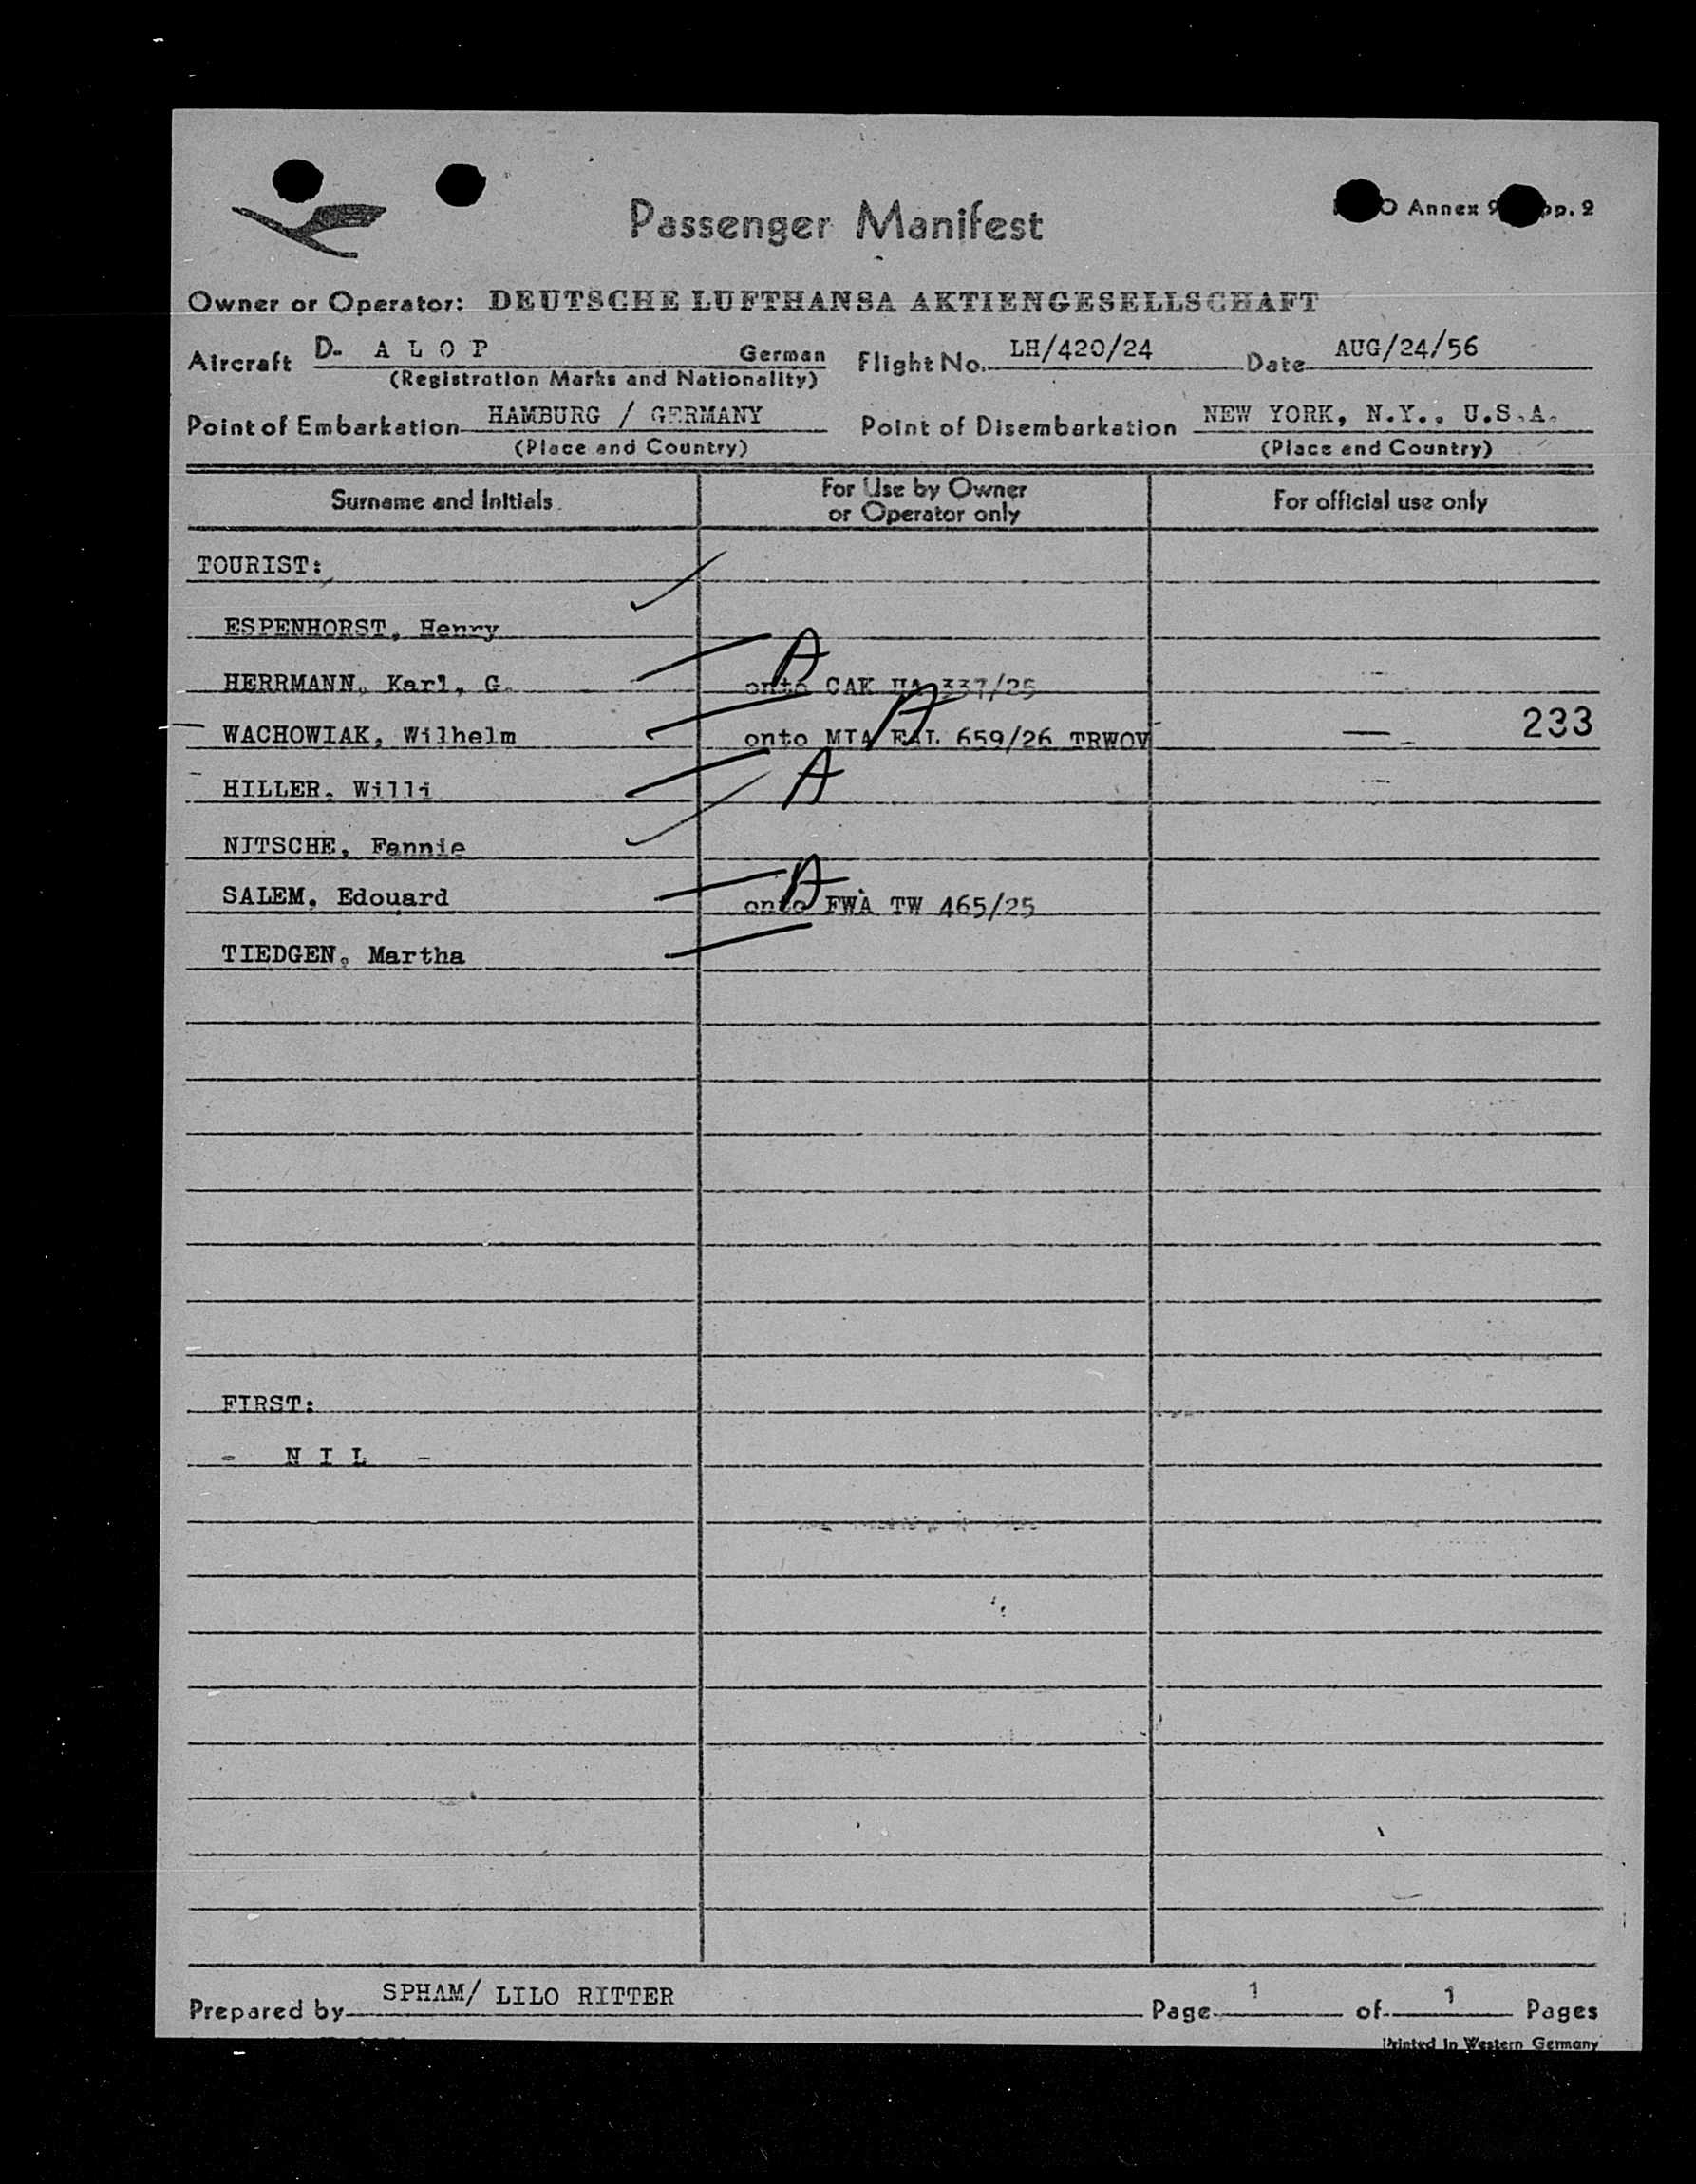 Passenger Manifest
O Annex 9 pp. 2
Owner or Operator: DEUTSCHE LUFTHANSA AKTIENGESELLSCHAFT
Aircraft D- A L O P German Flight No. LH/420/24 Date AUG/24/56
(Registration Marks and Nationality)
Point of Embarkation HAMBURG / GERMANY Point of Disembarkation NEW YORK, N.Y., U.S.A.
(Place and Country) (Place and Country)
Surname and Initials For Use by Owner or Operator only For official use only
TOURIST:
ESPENHORST, Henry
HERRMANN, Karl, G. A onto CAK UA 337/25
WACHOWIAK, Wilhelm onto MTA EAL 659/26 TRWOV A 233
HILLER, Willi A
NITSCHE, Fannie
SALEM, Edouard A onto FWA TW 465/25
TIEDGEN, Martha
FIRST:
- N I L -
Prepared by SPHAM/ LILO RITTER Page 1 of 1 Pages
Printed in Western Germany